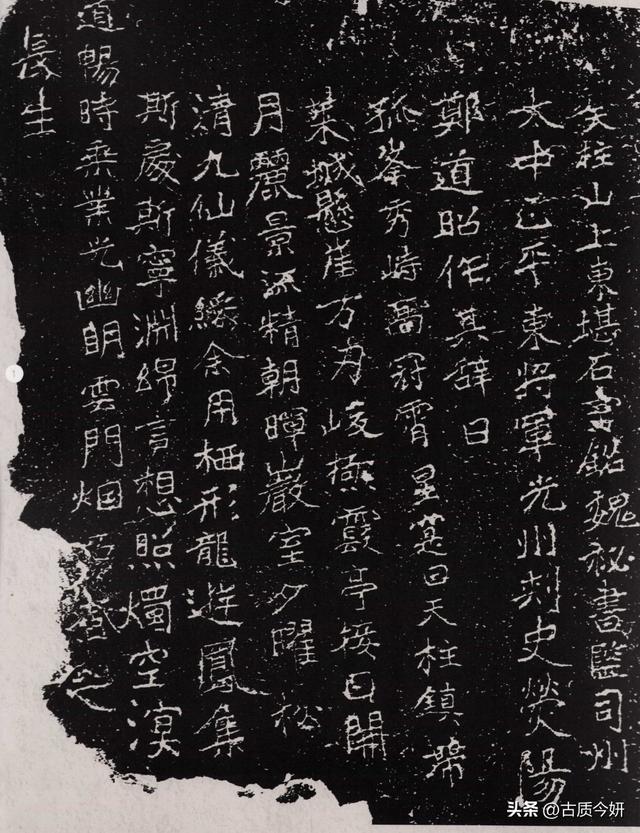 天柱山上東堪石室銘魏祕書監司州
大中正平東將軍光州刾史熒陽
鄭道昭作其辭曰
孤峯秀峙高冠霄星寔曰天柱鎮帶
萊城懸崖万刃峻極霞亭接日開
月麗景流精朝暉巖室夕曜松
清九仙儀綵余用栖形龍遊鳳集
斯處斯寧淵綿言想照燭空溟
道暢時乘業光幽明雲門烟石登之
長生
头条 @古质今妍